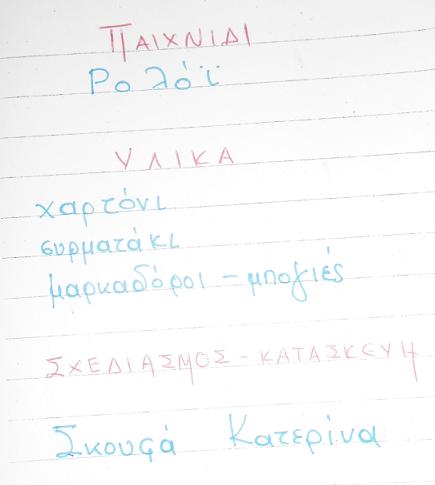 ΠΑΙΧΝΙΔΙ
Ρολόϊ
ΥΛΙΚΑ
χαρτόνι
συρματάκι
μαρκαδόροι - μπογιές
ΣΧΕΔΙΑΣΜΟΣ - ΚΑΤΑΣΚΕΥΗ
Σκουφά Κατερίνα